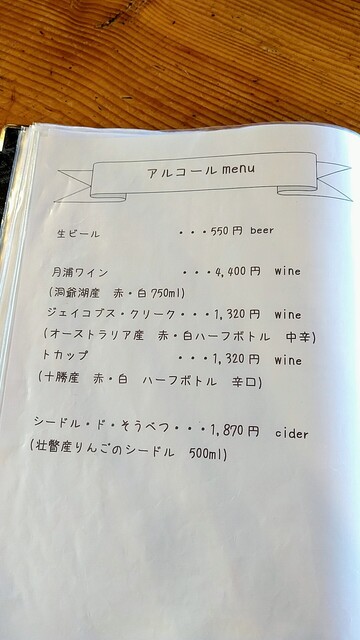 アルコール menu
生ビール ・・・550円 beer
月浦ワイン ・・・4,400円 wine
(洞爺湖産 赤・白750ml)
ジェイコブス・クリーク・・・1,320円 wine
(オーストラリア産 赤・白ハーフボトル 中辛)
トカップ ・・・1,320円 wine
(十勝産 赤・白 ハーフボトル 辛口)
シードル・ド・そうべつ・・・1,870円 cider
(壮瞥産りんごのシードル 500ml)